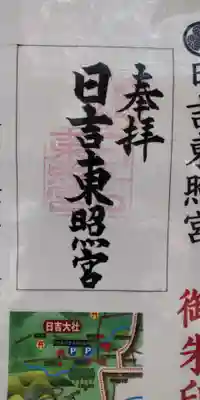 日吉東照宮
御朱印
奉拝
日吉東照宮
日吉大社
P P